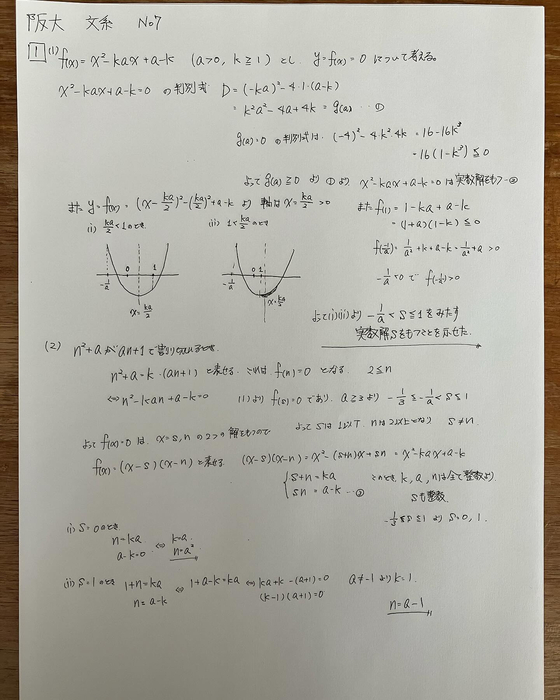 阪大 文系 No7
1 (1) f(x) = x²-kax+a-k (a>0, k≧1) とし、 y=f(x)=0 について考える。
x²-kax+a-k=0 の判別式 D=(-ka)²-4・1・(a-k)
= k²a²-4a+4k = g(a) … ①
g(a)=0 の判別式は、(-4)²-4k²・4k = 16-16k³
= 16(1-k³)≦0
よって g(a)≧0 より ①より x²-kax+a-k=0 は実数解をもつ…②
また y=f(x)=(x-ka/2)²-(ka/2)²+a-k より 軸は x=ka/2>0
また f(1) = 1-ka+a-k
= (1+a)(1-k)≦0
(i) ka/2<1のとき
(ii) 1<ka/2のとき
f(-1/a)=1/a²+k+a-k=1/a²+a>0
-1/a<0 で f(-1/a)>0
-1/a 0 1
x=ka/2
-1/a 0 1
x=ka/2
よって(i)(ii)より -1/a<s≦1をみたす
実数解sをもつことを示せた。
(2) n²+aがan+1で割りきれるとき、
n²+a=k・(an+1) と表せる。これは f(n)=0 となる。 2≦n
⇔n²-kan+a-k=0 (1)より f(s)=0であり、a≧3より -1/3≦-1/a<s≦1
よって sは1以下、nは2以上となり s≠n.
よって f(x)=0は、x=s,nの2つの解をもつので
f(x)=(x-s)(x-n)と表せる. (x-s)(x-n)=x²-(s+n)x+sn = x²-kax+a-k
s+n=ka
sn=a-k …③
このとき k, a, nは全て整数より
sも整数
-1/3≦s≦1より s=0, 1.
(i) s=0のとき
n=ka
a-k=0 ⇔ k=a
n=a²
(ii) s=1のとき 1+n=ka
n=a-k ⇔ 1+a-k=ka ⇔ ka+k-(a+1)=0
(k-1)(a+1)=0
a≠-1よりk=1.
n=a-1